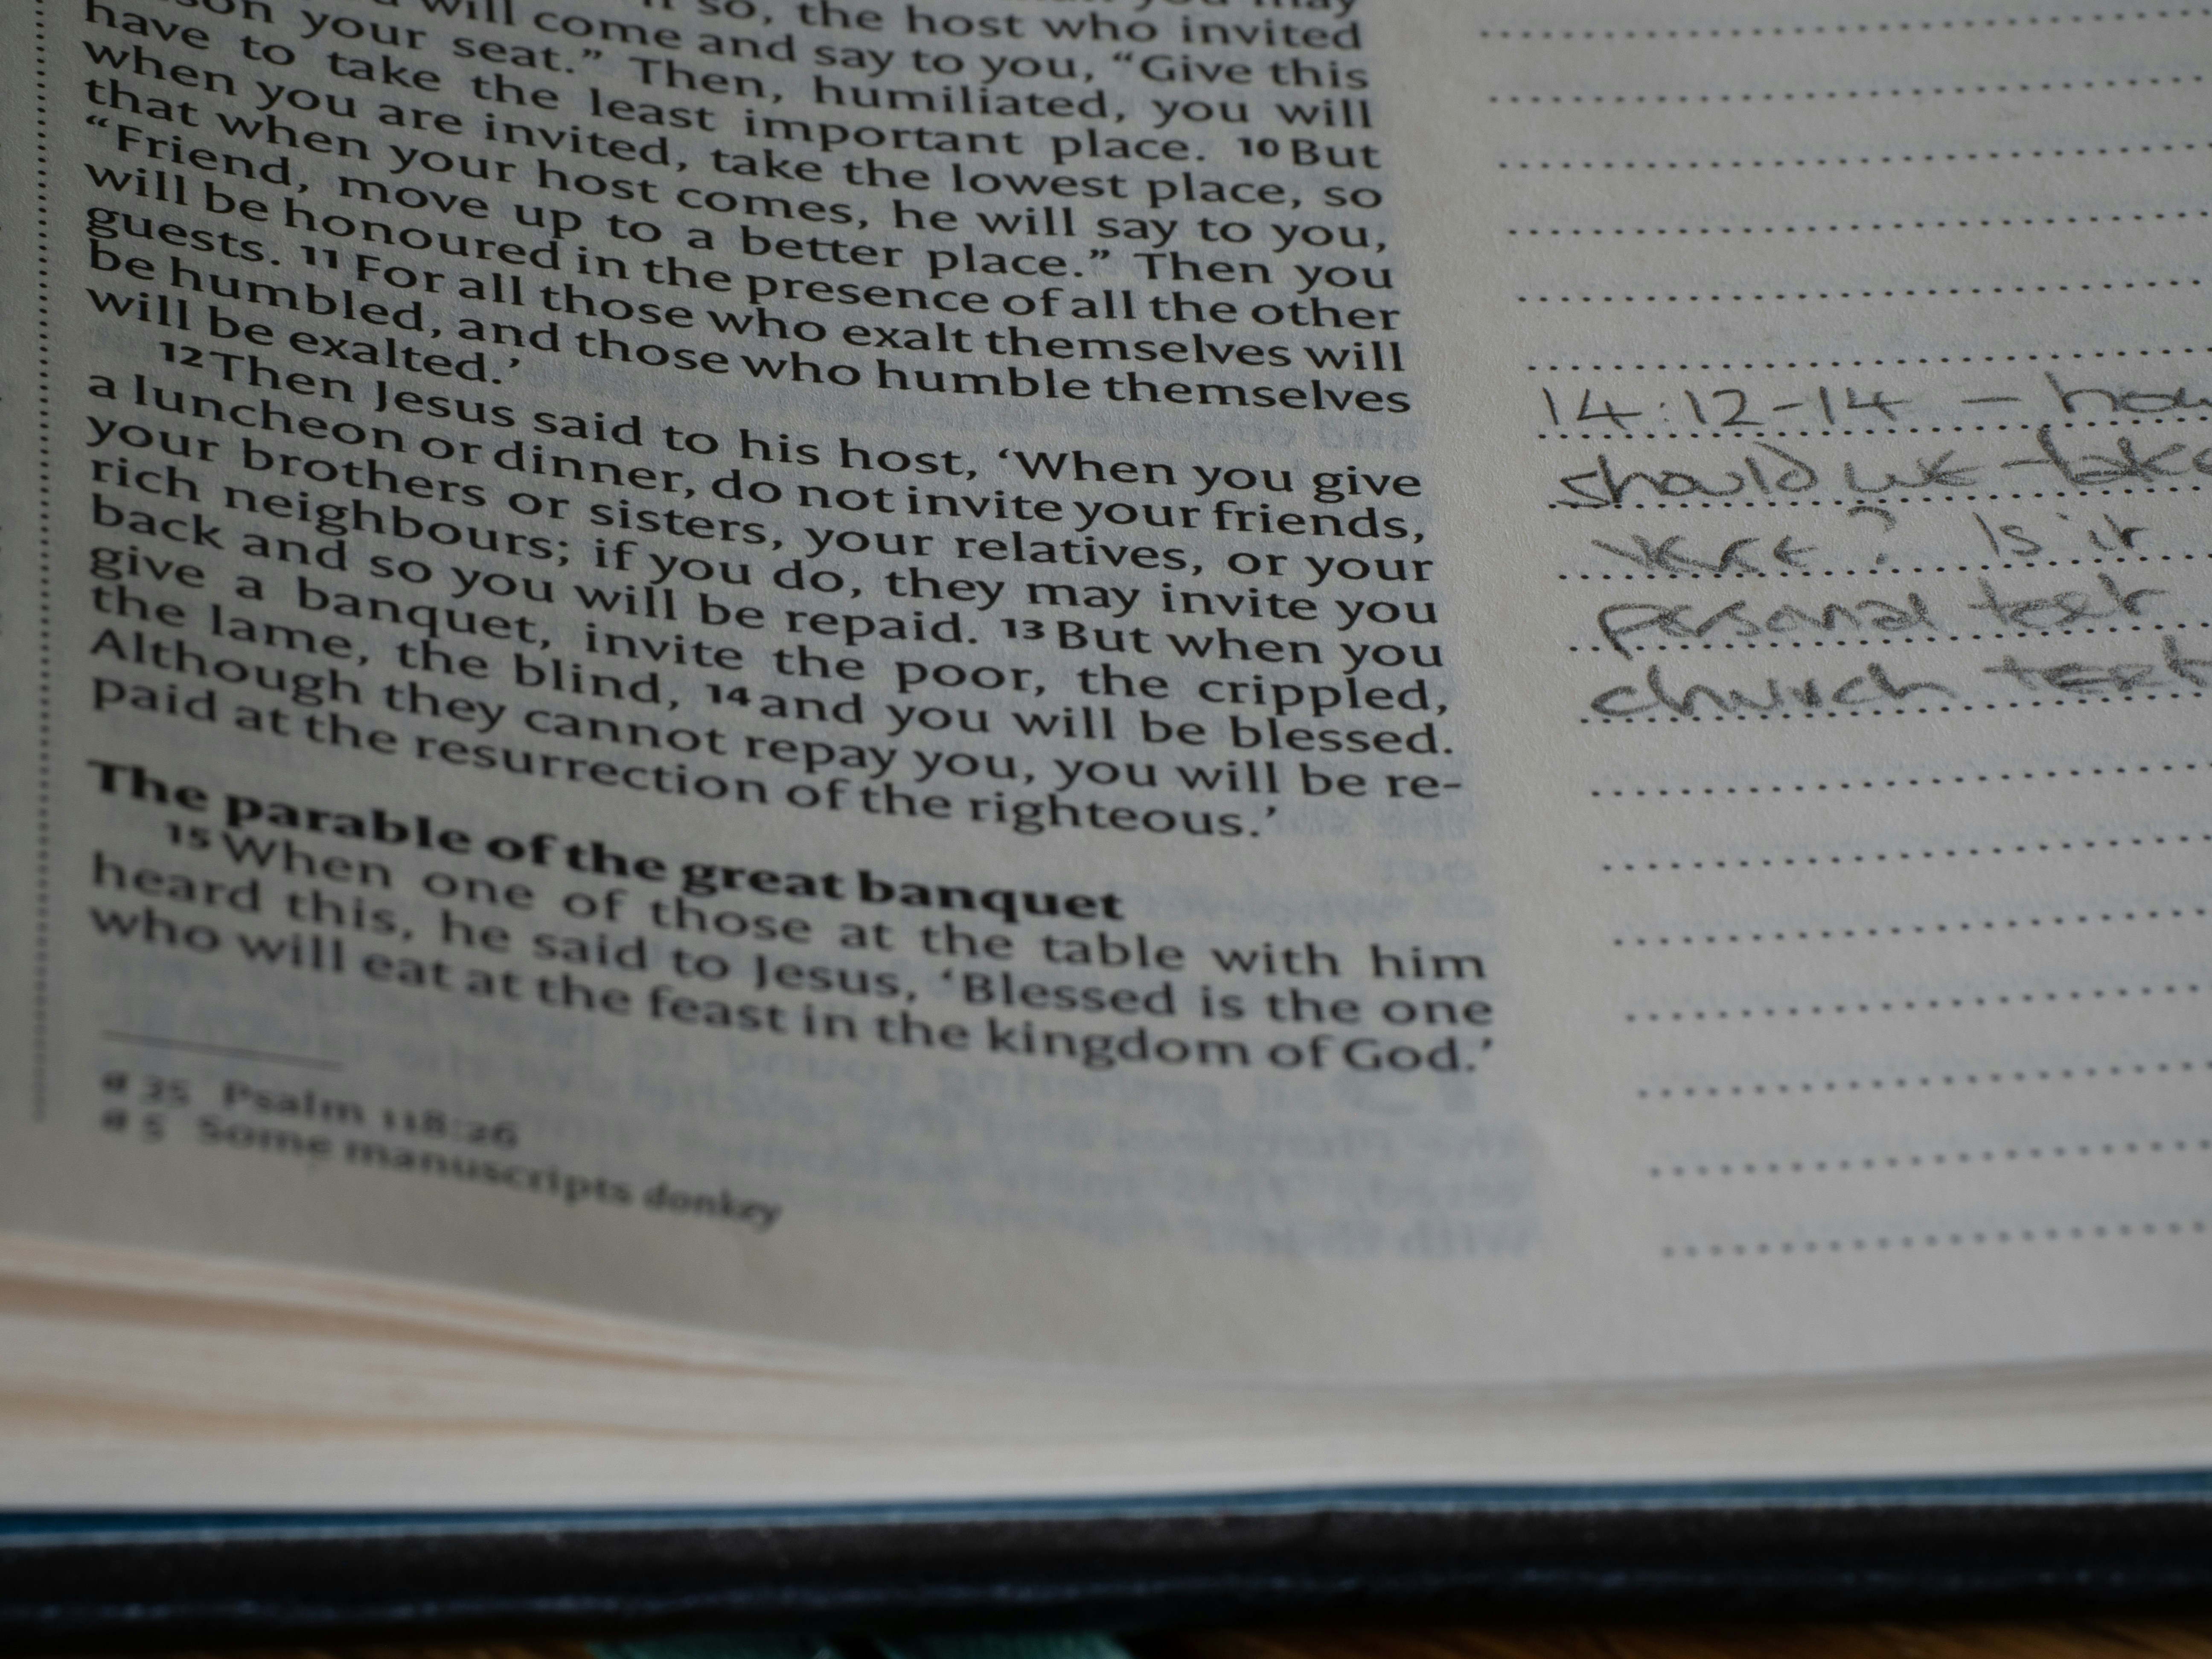 so, the host who invited
will come and say to you, “Give this
your seat.” Then, humiliated, you will
have to take the least important place. 10 But
when you are invited, take the lowest place, so
that when your host comes, he will say to you,
“Friend, move up to a better place.” Then you
will be honoured in the presence of all the other
guests. 11 For all those who exalt themselves will
be humbled, and those who humble themselves
will be exalted.’
12 Then Jesus said to his host, ‘When you give
a luncheon or dinner, do not invite your friends,
your brothers or sisters, your relatives, or your
rich neighbours; if you do, they may invite you
back and so you will be repaid. 13 But when you
give a banquet, invite the poor, the crippled,
the lame, the blind, 14 and you will be blessed.
Although they cannot repay you, you will be re-
paid at the resurrection of the righteous.’
The parable of the great banquet
15 When one of those at the table with him
heard this, he said to Jesus, ‘Blessed is the one
who will eat at the feast in the kingdom of God.’
a 35 Psalm 118:26
a 5 Some manuscripts donkey
14:12-14 – how
should we take
verse? Is it
personal text
church text